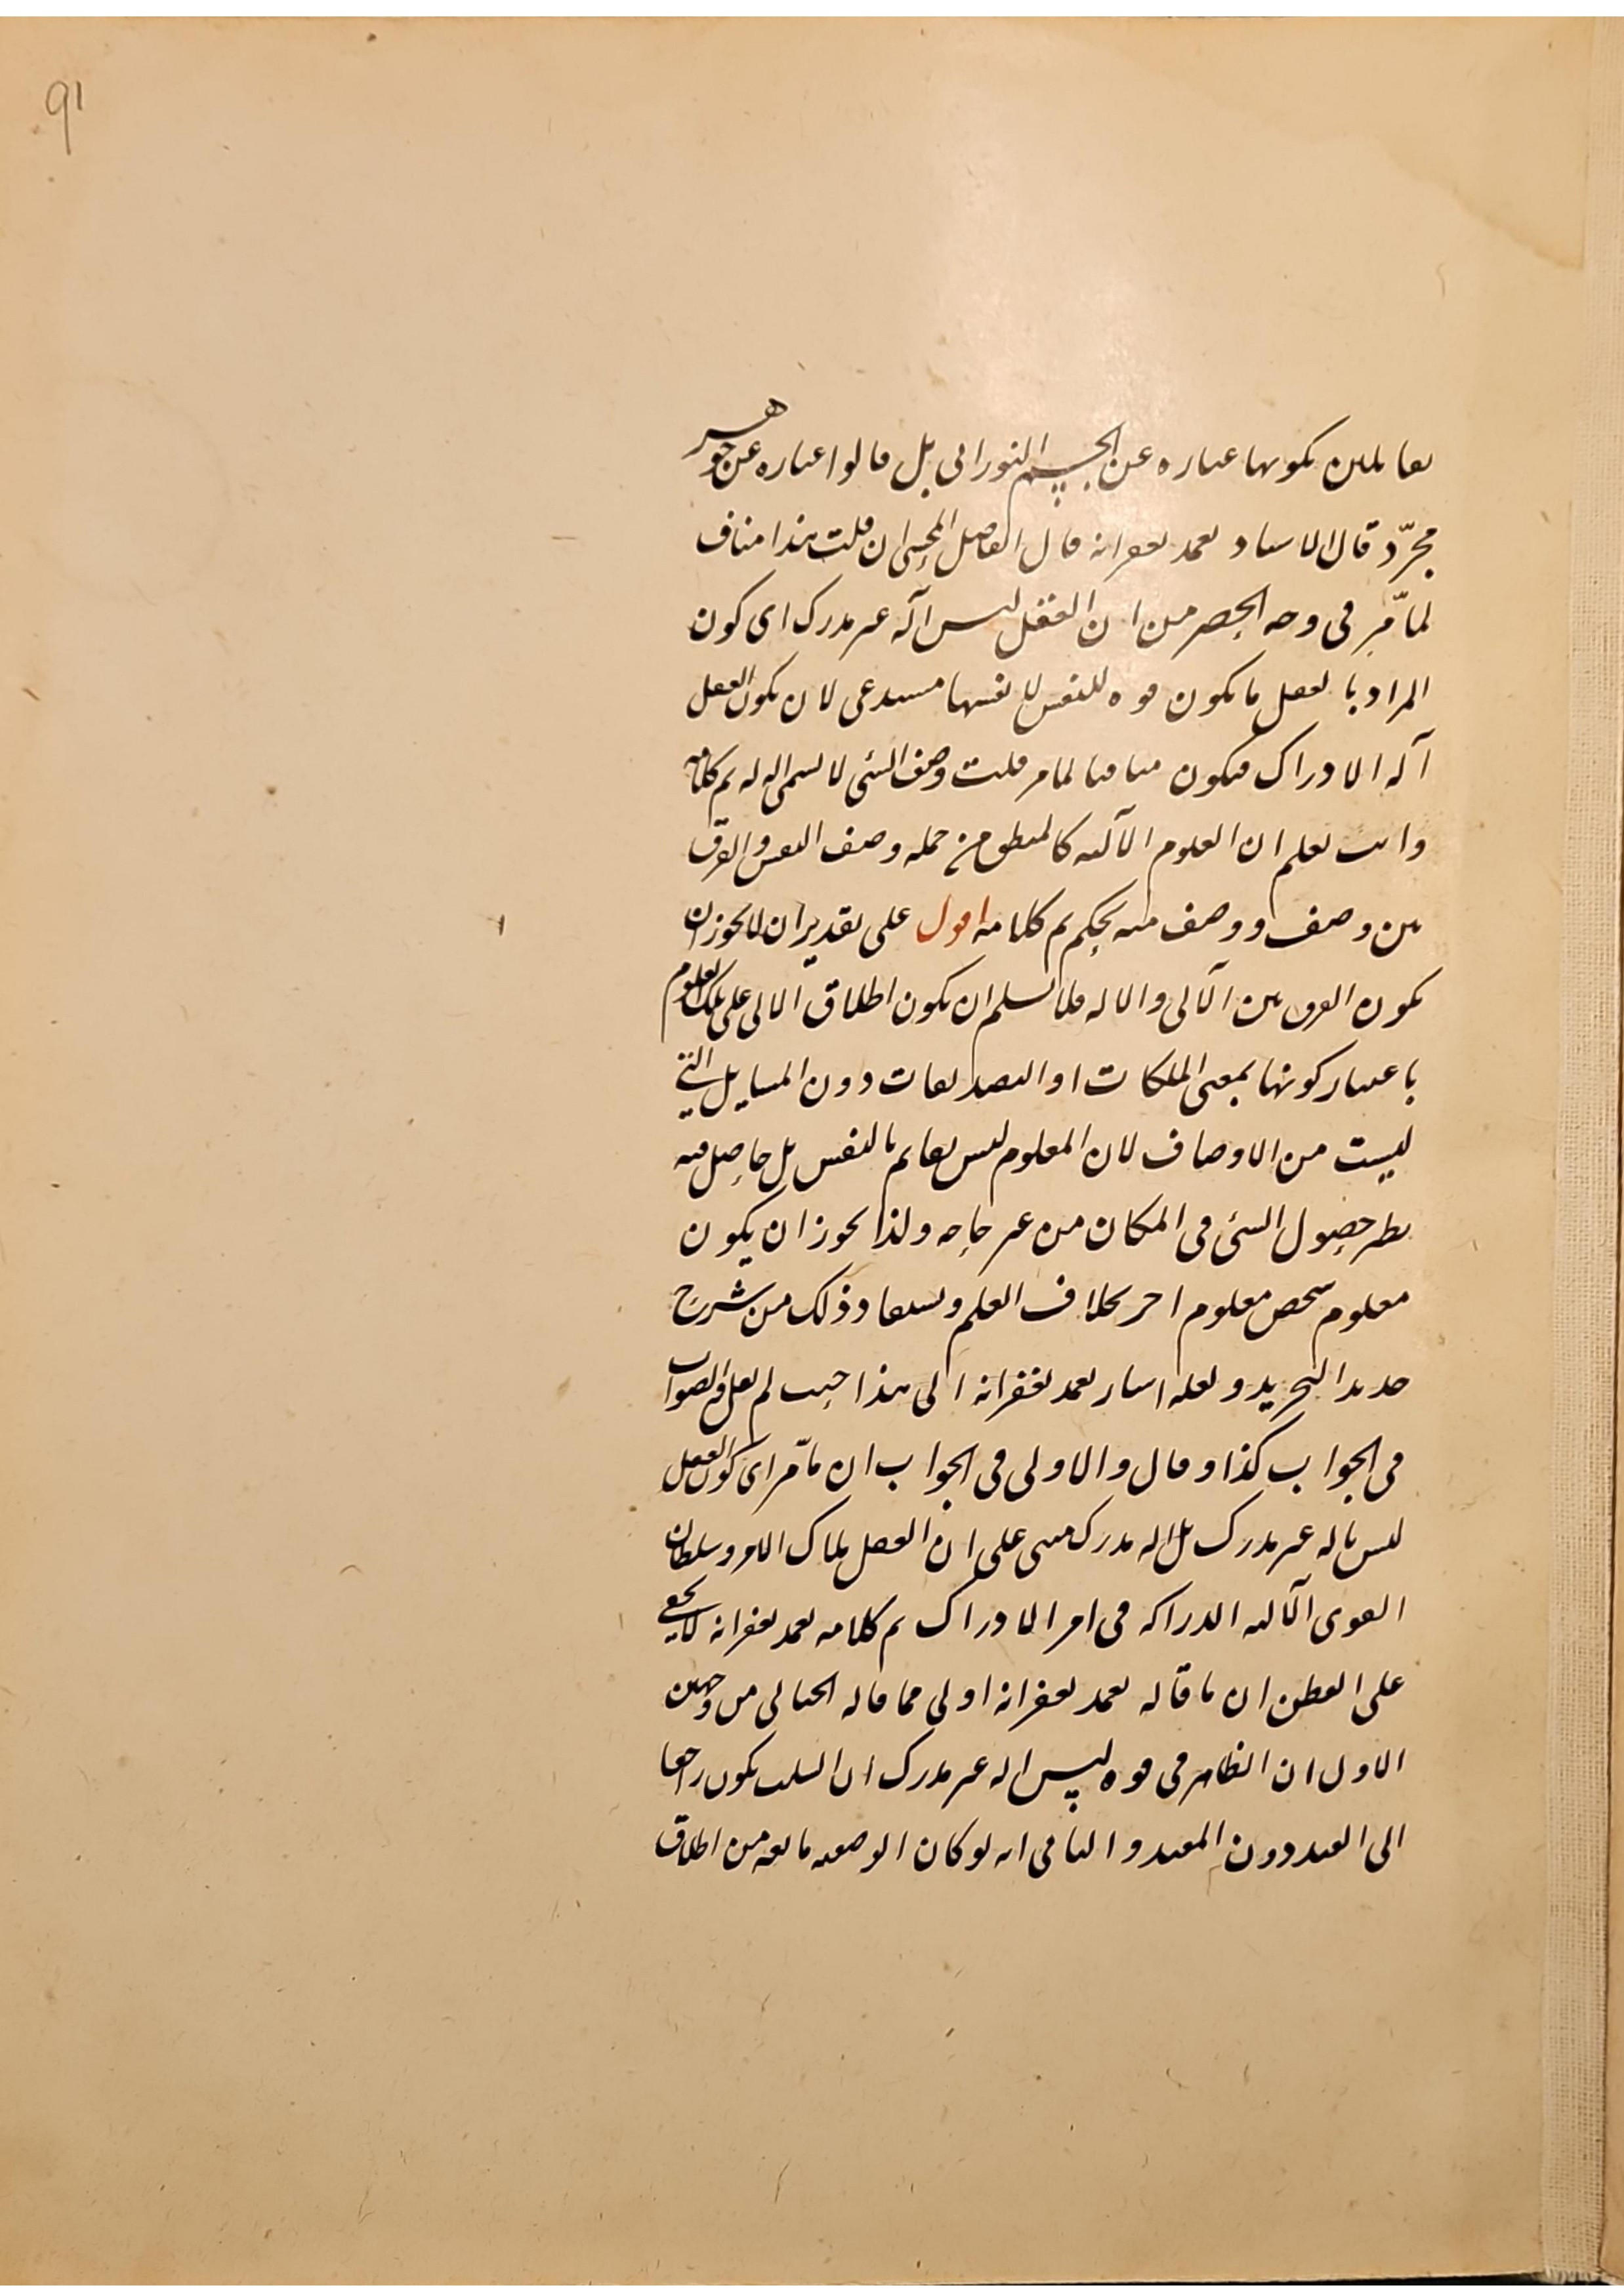 91
بقايلين بكونها عباره عن الجسم النوراني بل قالوا عباره عن جوهر
مجرّد قال الاستاد تغمد بغفرانه قال الفاضل المحشي ان قلت هذا مناف
لما مّر في وجه الحصر من ان العقل ليس آله غير مدرك اي كون
المراد بالعقل ما يكون قوه للنفس لا نفسها مستدعي لان يكون العقل
آله الادراك فيكون منافيا لما مر قلت وصف الشئ لا يسمى اله له تم كلامه
وانت تعلم ان العلوم الآليه كالمنطق من جمله وصف النفس والفرق
بين وصف ووصف منه تحكم تم كلامه اقول على تقدير ان لا يجوز ان
يكون الفرق بين الآلي والاله فلا نسلم ان يكون اطلاق الالي على تلك العلوم
باعتبار كونها بمعنى الملكات او التصديقات دون المسايل التي
ليست من الاوصاف لان المعلوم ليس بقايم بالنفس بل حاصل فيه
نظر حصول الشئ في المكان من غير حاجه ولذا يجوز ان يكون
معلوم شخص معلوم اخر بخلاف العلم ويستفاد ذلك من شرح
جديد التجريد ولعله اشار تغمد بغفرانه الى هذا حيث لم يقل والصواب
في الجواب كذا وقال والاولى في الجواب ان ما مّر اي كون العقل
ليس باله غير مدرك بل اله مدرك مبني على ان العقل ملاك الامر وسلطان
القوى الآليه الدراكه في امر الادراك تم كلامه تغمد بغفرانه لا يخفى
على الفطن ان ما قاله تغمد بغفرانه اولى مما قاله الخيالي من وجهين
الاول ان الظاهر في قوه ليس اله غير مدرك ان السلب يكون راجعا
الى القيد دون المقيد والثاني انه لو كان الوصفيه مانعه من اطلاق